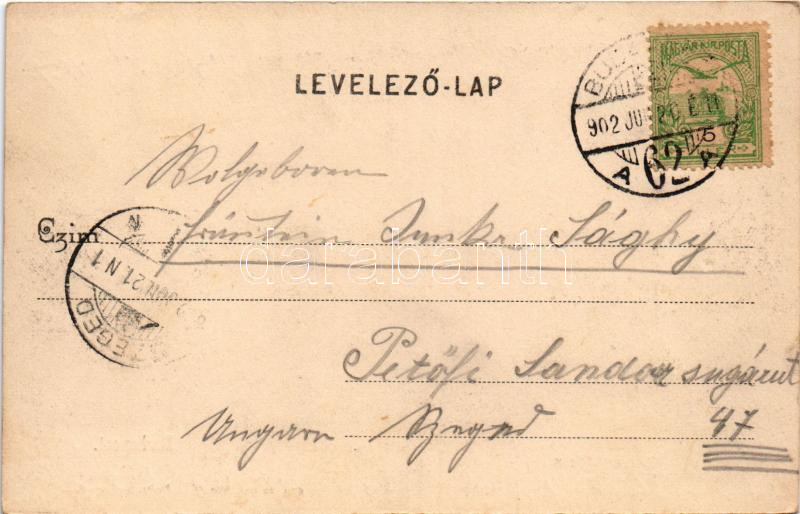 MAGYAR KIR. POSTA
LEVELEZŐ-LAP
902 JUN
62
5
A A
Wolgeboren
Czim Fräulein Sághy
N
JUN. 21. N 1
SZEGED
darabanth
Petőfi Sandor sugárut
Ungarn Szeged 47